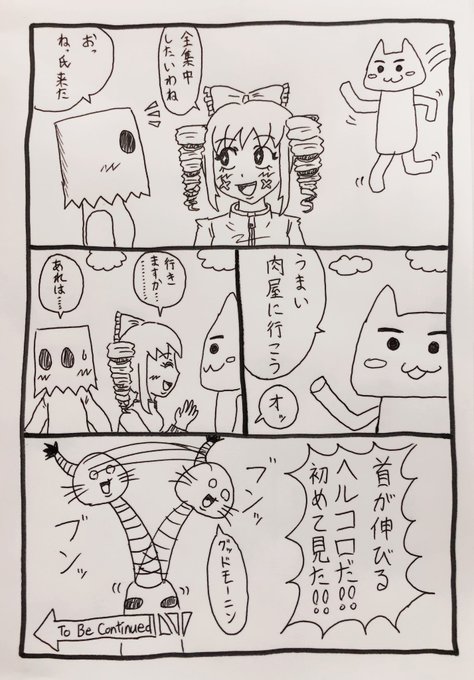 全集中
したいわね
おっ
ね、氏来た
うまい
肉屋に行こう
オッ
行き
ますか……
あれは……
首が伸びる
ヘルコロだ!!
初めて見た!!
ブンッ
ブンッ
グッドモーニン
To Be Continued